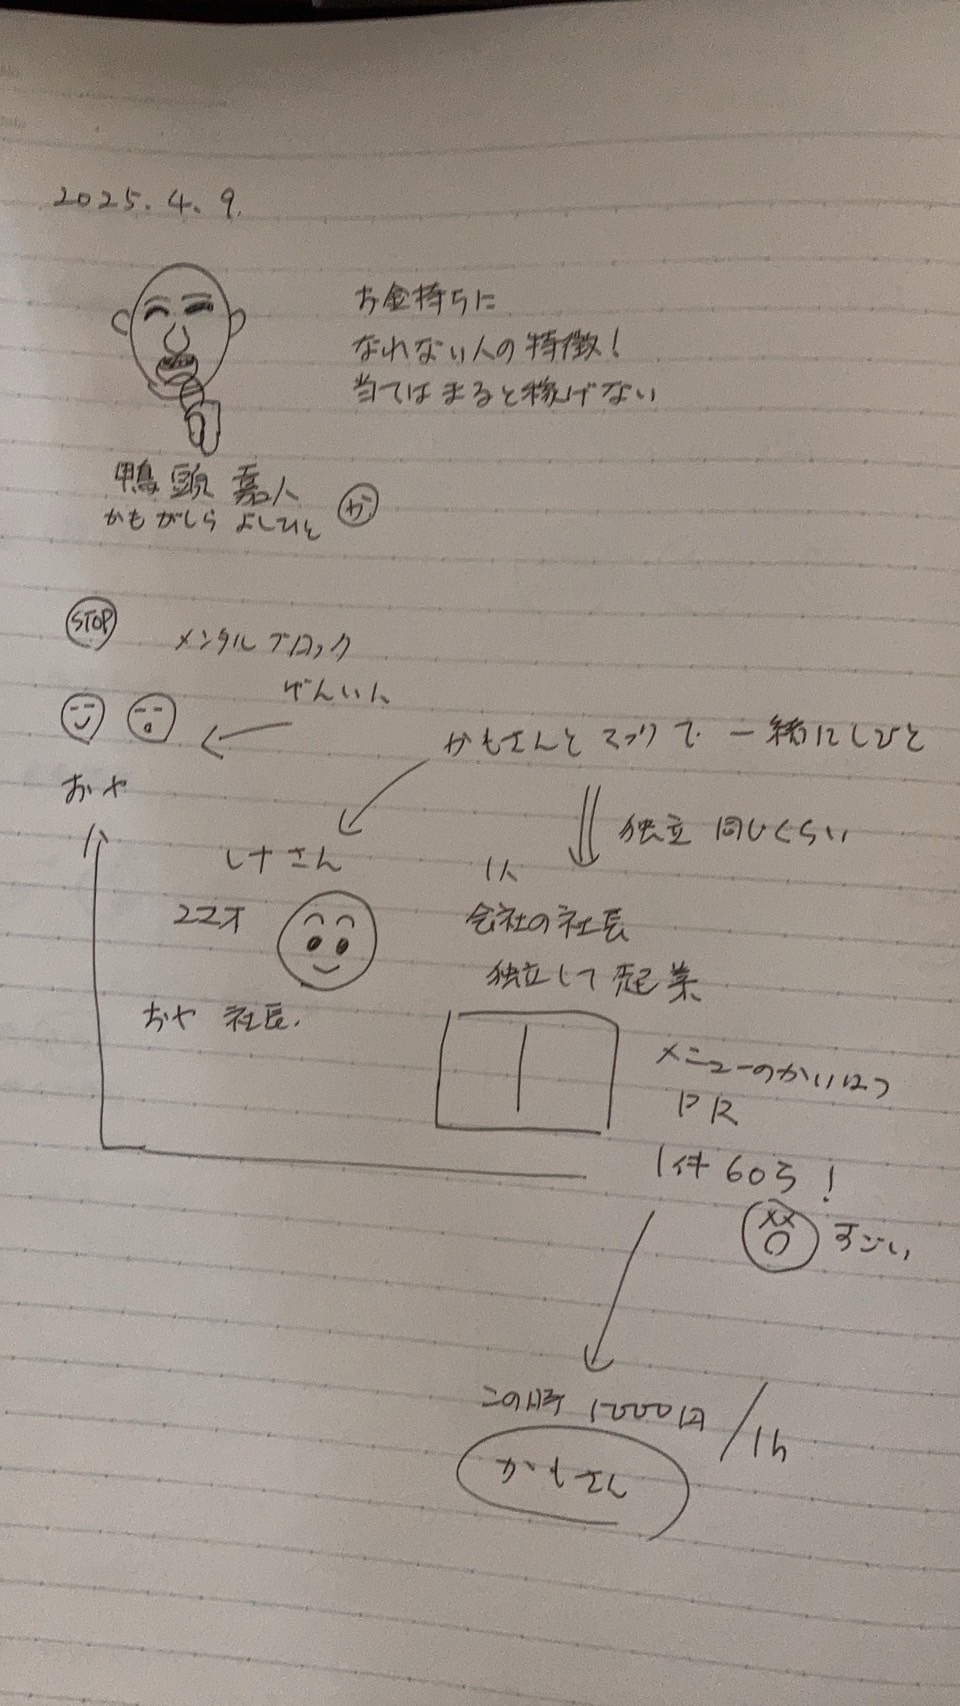 2025.4.9.
お金持ちに
なれない人の特徴!
当てはまると稼げない
鴨頭 嘉人
かもがしら よしひと
か
STOP
メンタルブロック
げんいん
かもさんと マックで 一緒にしびと
おや
独立 同じくらい
しナさん
1人
22才
会社の社長
独立して 起業
おや 社長.
メニューのかいはつ
PR
1件 60万!
すごい
この時 1000円/1h
かもさん